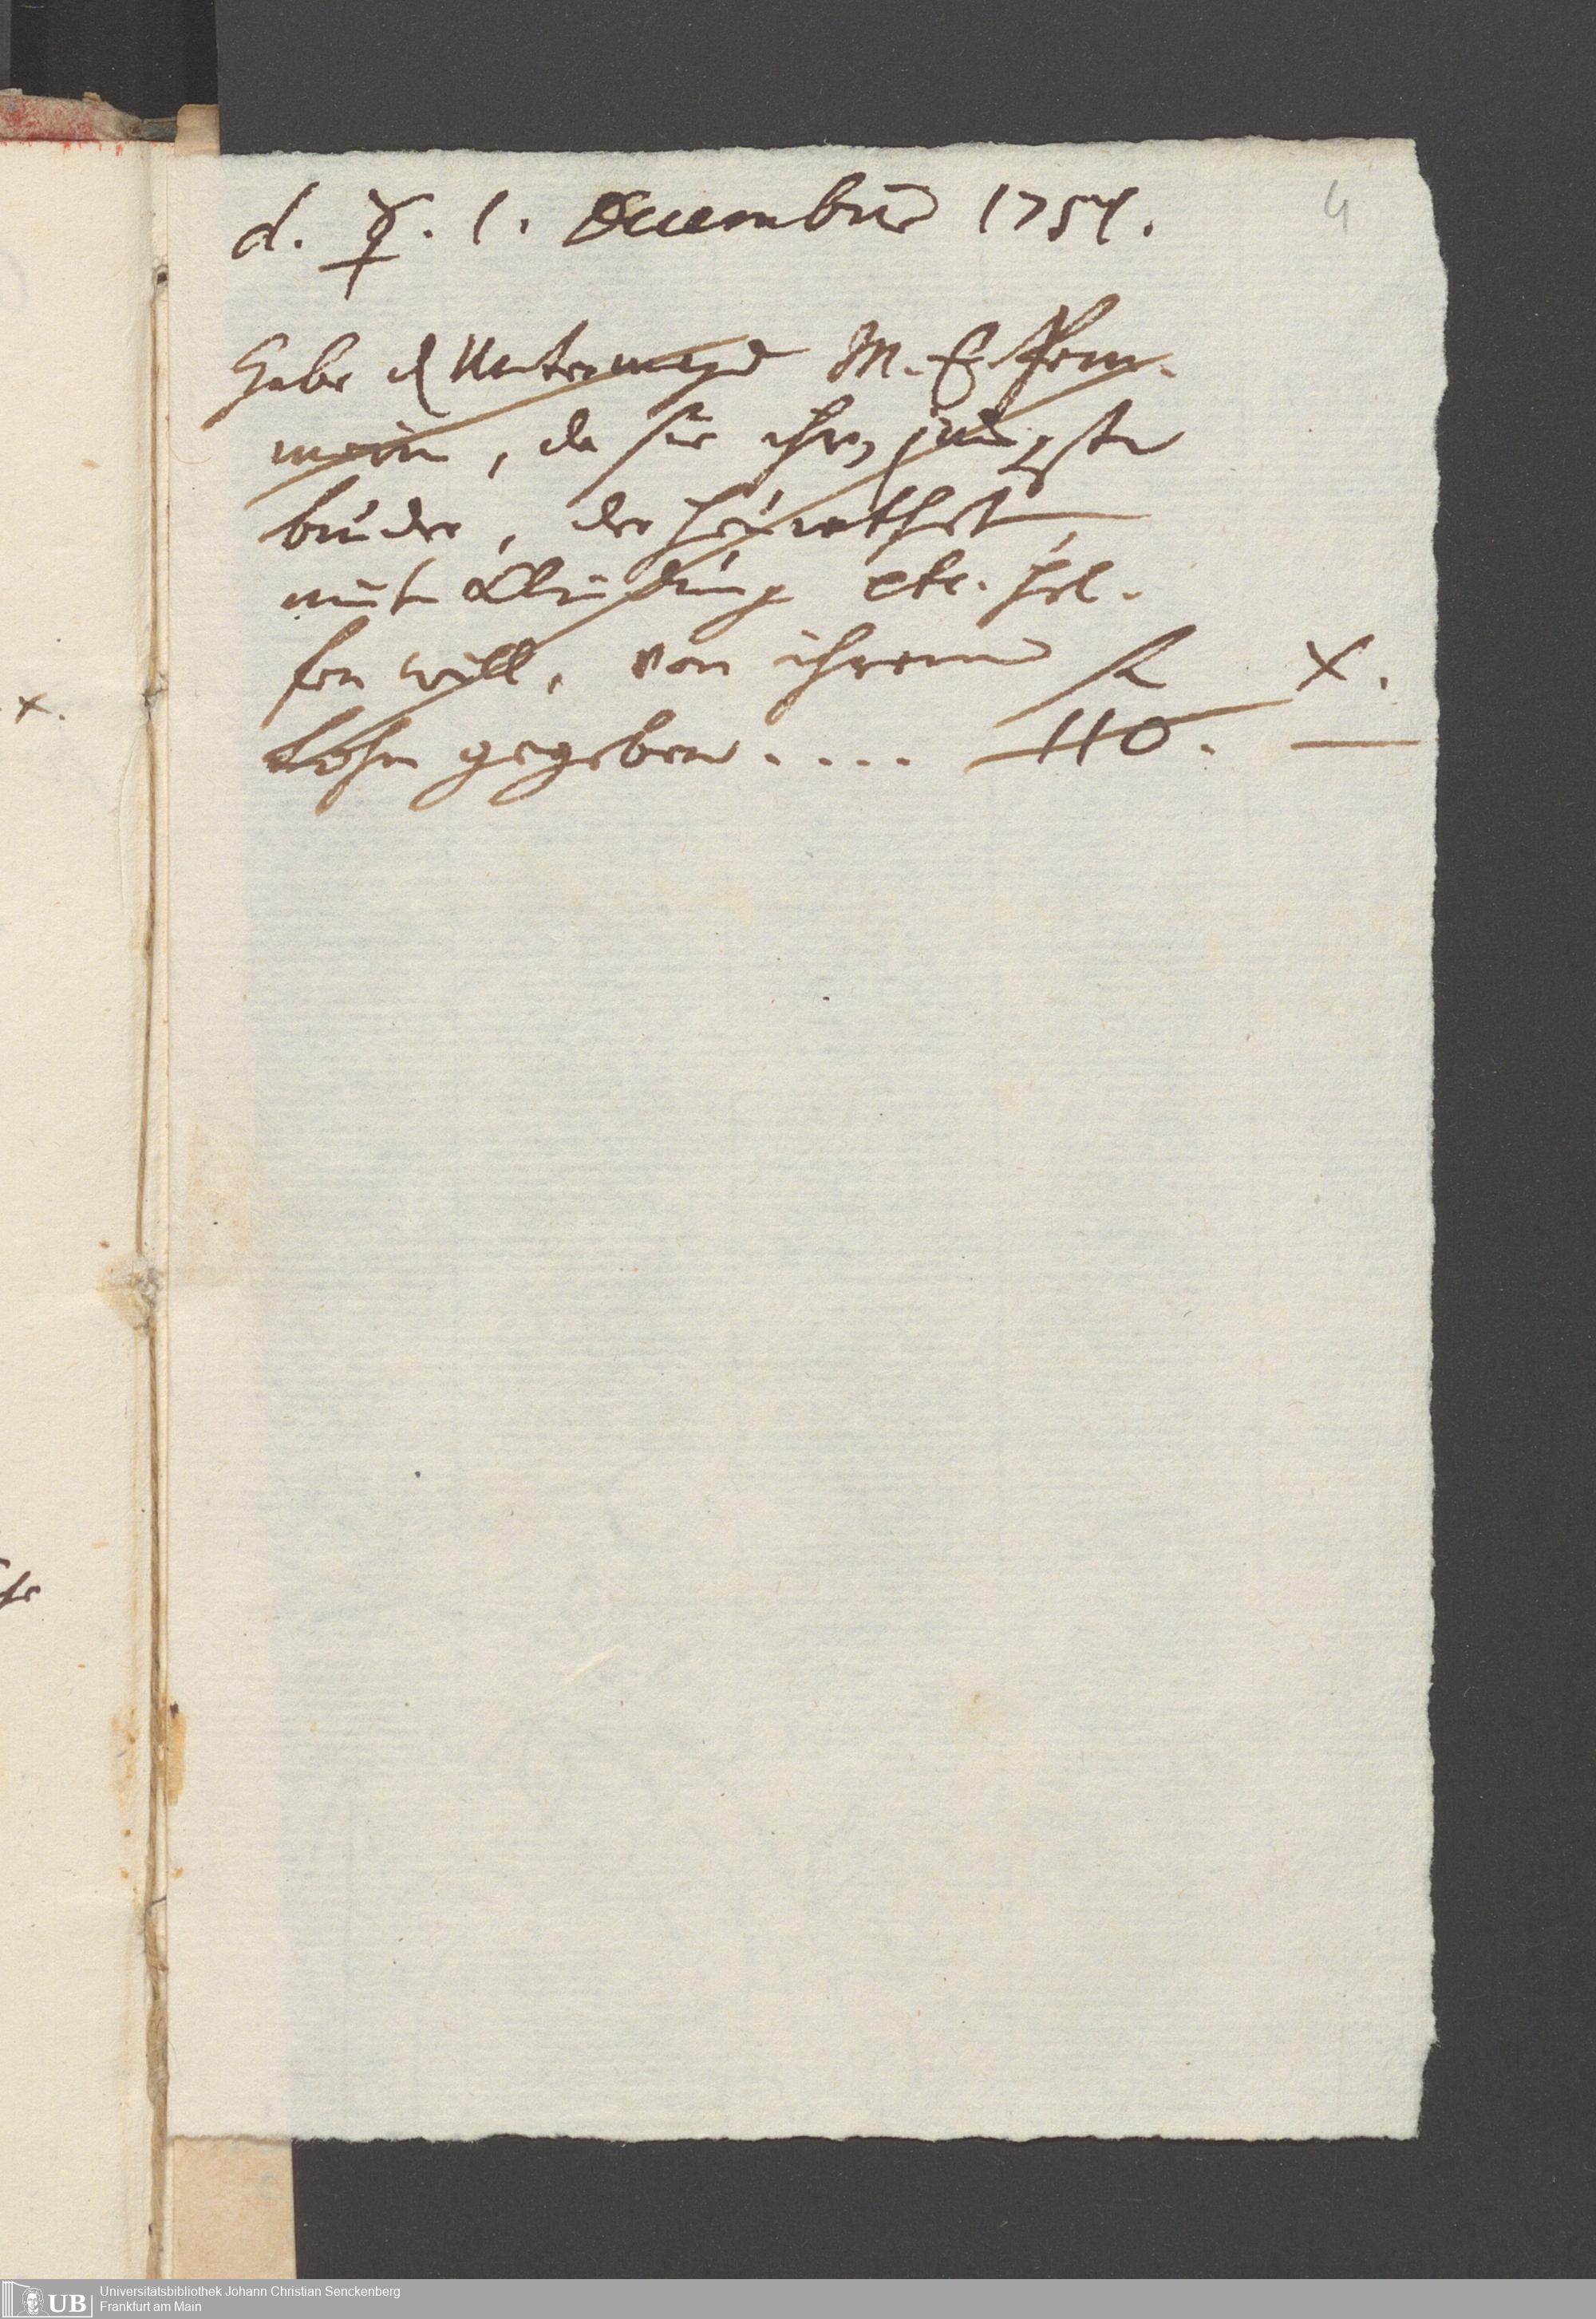 d. ☿. 1. December 1751.
4
Habe d Untermagd M. E.
, da sie ihren jüngsten
bruder, der heyrathet,
mit Kleidung etc. hel-
fen will, von ihrem fl x.
Lohn gegeben . . . . 110. —
x.
UB
Universitätsbibliothek Johann Christian Senckenberg
Frankfurt am Main